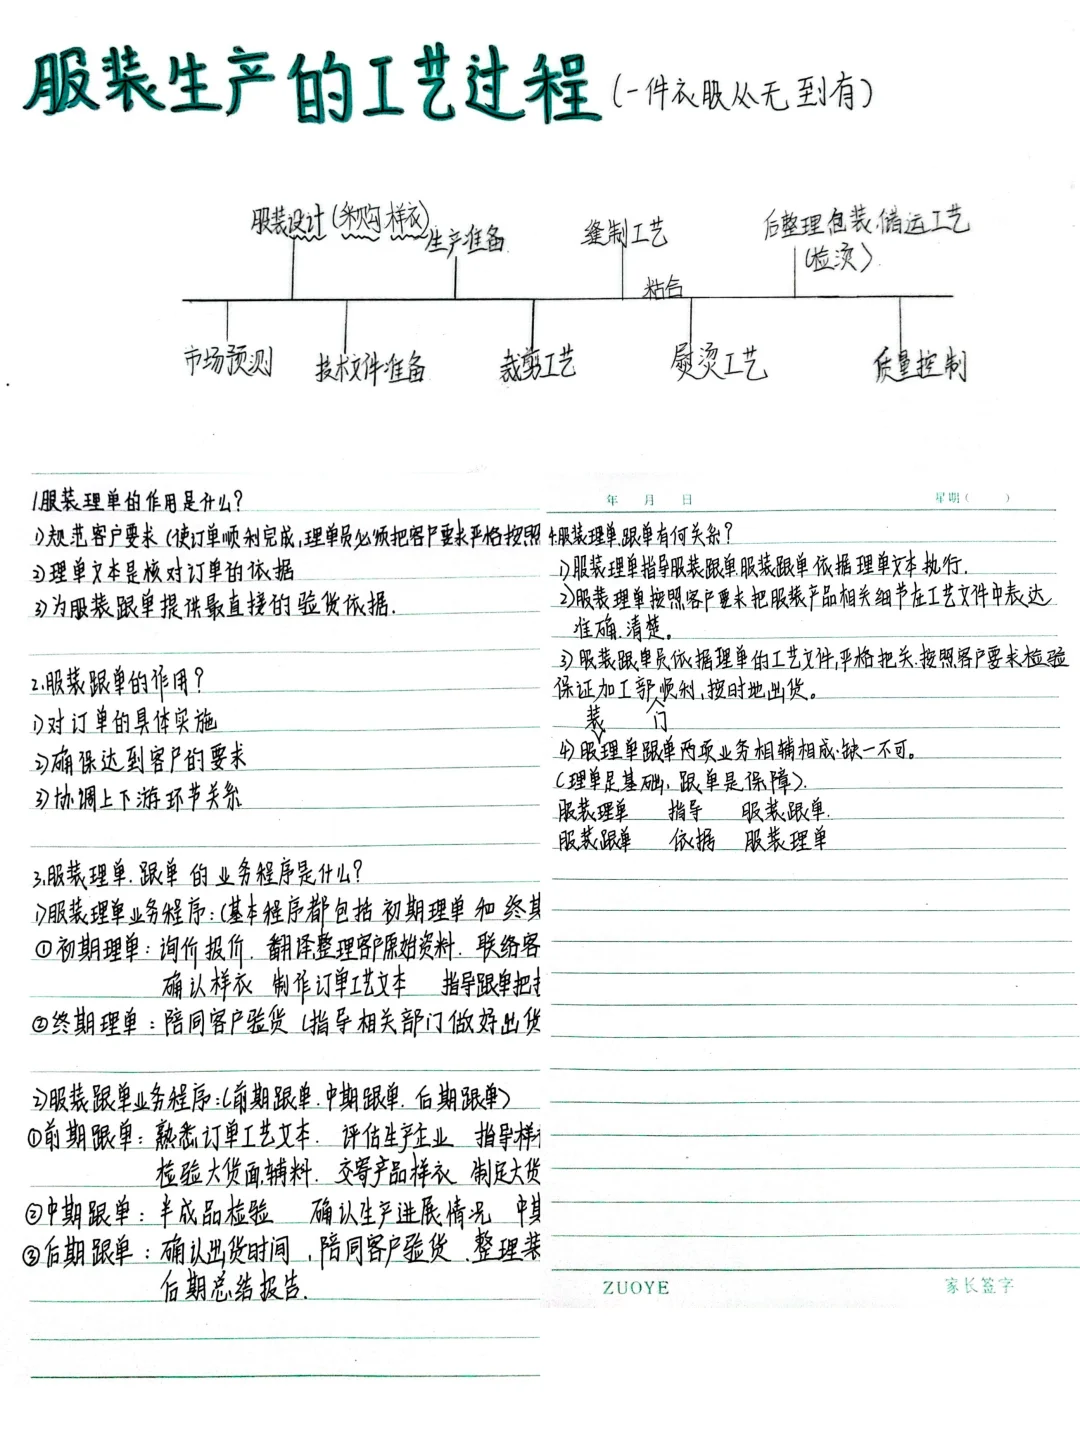 服装生产的工艺过程(一件衣服从无到有)
服装设计(采购样衣)
生产准备
缝制工艺
后整理包装.储运工艺
(检烫)
粘合
市场预测
技术文件准备
裁剪工艺
熨烫工艺
质量控制
1.服装理单的作用是什么?
1)规范客户要求(使订单顺利完成,理单员必须把客户要求严格按照
2)理单文本是核对订单的依据
3)为服装跟单提供最直接的验货依据.
2.服装跟单的作用?
1)对订单的具体实施
2)确保达到客户的要求
3)协调上下游环节关系
3.服装理单.跟单的业务程序是什么?
1)服装理单业务程序:(基本程序都包括初期理单和终其
①初期理单:询价报价.翻译整理客户原始资料.联络客
确认样衣 制作订单工艺文本 指导跟单把
②终期理单:陪同客户验货(指导相关部门做好出货
2)服装跟单业务程序:(前期跟单.中期跟单.后期跟单)
①前期跟单:熟悉订单工艺文本. 评估生产企业 指导样
检验大货面,辅料. 交寄产品样衣 制定大货
②中期跟单:半成品检验 确认生产进展情况 中
③后期跟单:确认出货时间,陪同客户验货.整理装
后期总结报告.
年 月 日 星期( )
4.服装理单.跟单有何关系?
1)服装理单指导服装跟单.服装跟单依据理单文本执行.
2)服装理单按照客户要求把服装产品相关细节在工艺文件中表达
准确.清楚。
3)服装跟单员依据理单的工艺文件,严格把关.按照客户要求检验
保证加工部顺利,按时地出货。
装 门
4)服理单跟单两项业务相辅相成.缺一不可。
(理单是基础,跟单是保障).
服装理单 指导 服装跟单.
服装跟单 依据 服装理单
ZUOYE 家长签字